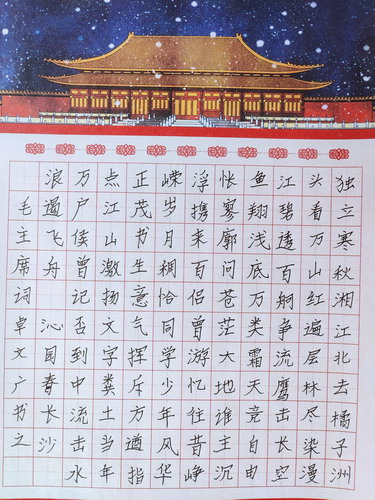 独立寒秋湘江北去橘子洲
头看万山红遍层林尽染漫
江碧透百舸争流鹰击长空
鱼翔浅底万类霜天竞自由
怅寥廓问苍茫大地谁主沉
浮携来百侣曾游忆往昔峥
嵘岁月稠恰同学少年风华
正茂书生意气挥斥方遒指
点江山激扬文字粪土当年
万户侯曾记否到中流击水
浪遏飞舟 沁园春长沙
毛主席词 卓文广书之